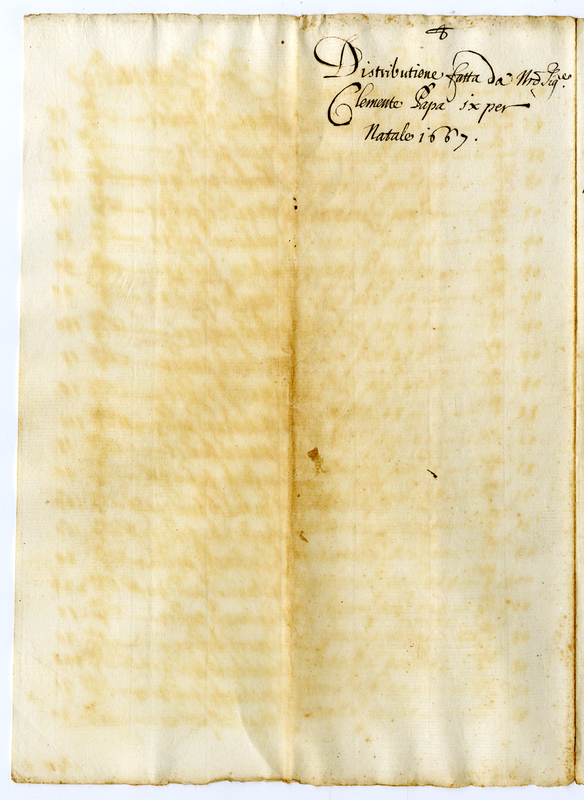 Distributione fatta da Nrõ Sigre.
Clemente Papa ix per
Natale 1667.